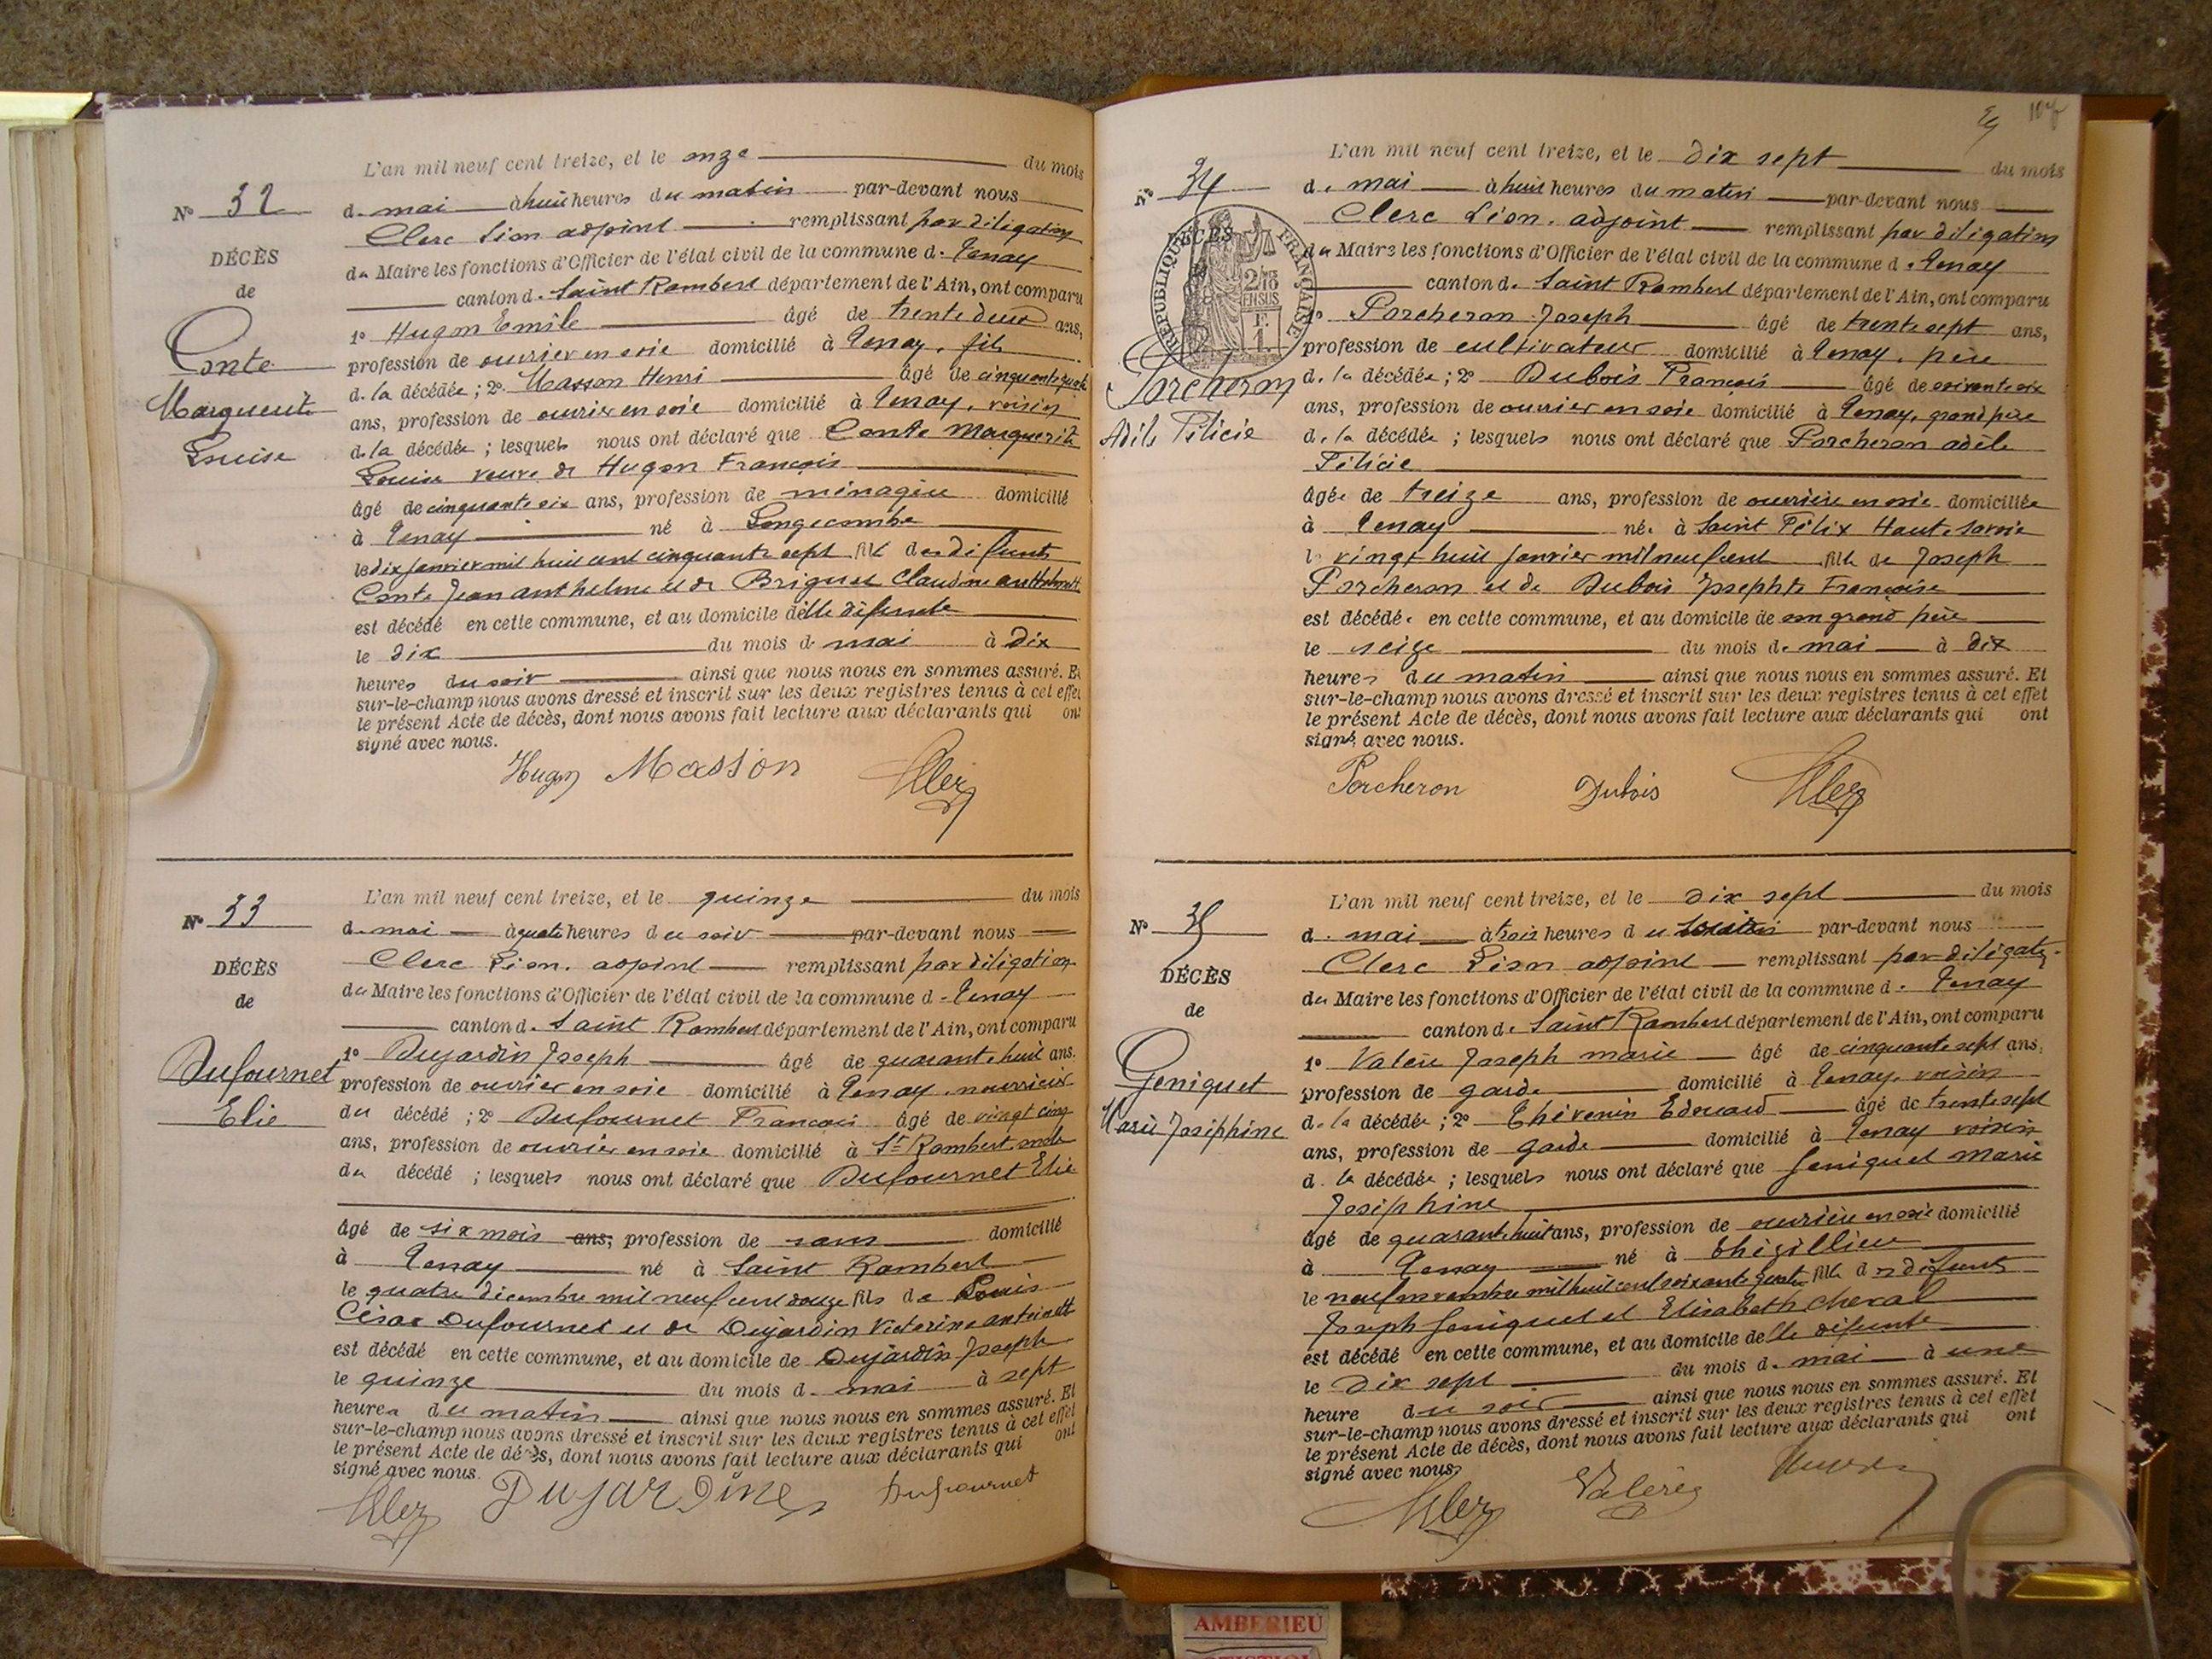 L'an mil neuf cent treize, et le onze du mois
N° 32
de mai à huit heures du matin par-devant nous
Clerc Léon adjoint remplissant par délégation
DÉCÈS
du Maire les fonctions d'Officier de l'état civil de la commune de Tenay
de
canton de Saint Rambert département de l'Ain, ont comparu
Conte
Marguerite
Louise
1° Hugon Emile âgé de trente deux ans,
profession de ouvrier en soie domicilié à Tenay, fils
de la décédée ; 2° Masson Henri âgé de cinquante quatre
ans, profession de ouvrier en soie domicilié à Tenay, voisin
de la décédée ; lesquels nous ont déclaré que Conte Marguerite
Louise veuve de Hugon François
âgé de cinquante six ans, profession de ménagère domicilié
à Tenay né à Longecombe
le dix janvier mil huit cent cinquante sept fille des défunts
Conte Jean anthelme et de Briguet Claudine
est décédé en cette commune, et au domicile de elle défunte
le dix du mois de mai à dix
heures du soir ainsi que nous nous en sommes assuré. Et
sur-le-champ nous avons dressé et inscrit sur les deux registres tenus à cet effet
le présent Acte de décès, dont nous avons fait lecture aux déclarants qui ont
signé avec nous.
Hugon Masson Clerc
L'an mil neuf cent treize, et le quinze du mois
N° 33
de mai à quatre heures du soir par-devant nous
Clerc Léon. adjoint remplissant par délégation
DÉCÈS
du Maire les fonctions d'Officier de l'état civil de la commune de Tenay
de
canton de Saint Rambert département de l'Ain, ont comparu
Dufournet
Elie
1° Dujardin Joseph âgé de quarante huit ans.
profession de ouvrier en soie domicilié à Tenay, nourricier
du décédé ; 2° Dufournet François âgé de vingt cinq
ans, profession de ouvrier en soie domicilié à St Rambert, oncle
du décédé ; lesquels nous ont déclaré que Dufournet Elie
âgé de six mois ans, profession de sans domicilié
à Tenay né à Saint Rambert
le quatre décembre mil neuf cent douze fils de Louis
César Dufournet et de Dujardin Victorine antoinette
est décédé en cette commune, et au domicile de Dujardin Joseph
le quinze du mois de mai à sept
heures du matin ainsi que nous nous en sommes assuré. Et
sur-le-champ nous avons dressé et inscrit sur les deux registres tenus à cet effet
le présent Acte de décès, dont nous avons fait lecture aux déclarants qui ont
signé avec nous.
Clerc Dujardine Dufournet
L'an mil neuf cent treize, et le dix sept du mois
N° 34
de mai à huit heures du matin par-devant nous
Clerc Léon. adjoint remplissant par délégation
DÉCÈS
RÉPUBLIQUE FRANÇAISE
2/10 EN SUS
du Maire les fonctions d'Officier de l'état civil de la commune de Tenay
canton de Saint Rambert département de l'Ain, ont comparu
Porcheron
Adèle Félicie
1° Porcheron Joseph âgé de trente sept ans,
profession de cultivateur domicilié à Tenay, père
de la décédée ; 2° Dubois François âgé de soixante six
ans, profession de ouvrier en soie domicilié à Tenay, grand père
de la décédée ; lesquels nous ont déclaré que Porcheron adèle
Félicie
âgée de treize ans, profession de ouvrière en soie domiciliée
à Tenay née à Saint Félix Haute Savoie
le vingt huit janvier mil neuf cent fille de Joseph
Porcheron et de Dubois Josephte Françoise
est décédée en cette commune, et au domicile de son grand père
le seize du mois de mai à dix
heures du matin ainsi que nous nous en sommes assuré. Et
sur-le-champ nous avons dressé et inscrit sur les deux registres tenus à cet effet
le présent Acte de décès, dont nous avons fait lecture aux déclarants qui ont
signé avec nous.
Porcheron Dubois Clerc
L'an mil neuf cent treize, et le dix sept du mois
N° 35
de mai à trois heures du soir par-devant nous
Clerc Léon adjoint remplissant par délégation
DÉCÈS
du Maire les fonctions d'Officier de l'état civil de la commune de Tenay
de
canton de Saint Rambert département de l'Ain, ont comparu
Geniquet
Marie Joséphine
1° Valérie Joseph marie âgé de cinquante sept ans,
profession de garde domicilié à Tenay, voisin
de la décédée ; 2° Thévenin Edouard âgé de trente sept
ans, profession de garde domicilié à Tenay voisin
de la décédée ; lesquels nous ont déclaré que Geniquet Marie
Joséphine
âgé de quarante huit ans, profession de ouvrière en soie domicilié
à Tenay né à Thézillieu
le neuf novembre mil huit cent soixante quatre fille des défunts
Joseph Geniquet et Elisabeth Cheval
est décédé en cette commune, et au domicile de elle défunte
le dix sept du mois de mai à une
heure du soir ainsi que nous nous en sommes assuré. Et
sur-le-champ nous avons dressé et inscrit sur les deux registres tenus à cet effet
le présent Acte de décès, dont nous avons fait lecture aux déclarants qui ont
signé avec nous
Clerc Valérie
AMBERIEU